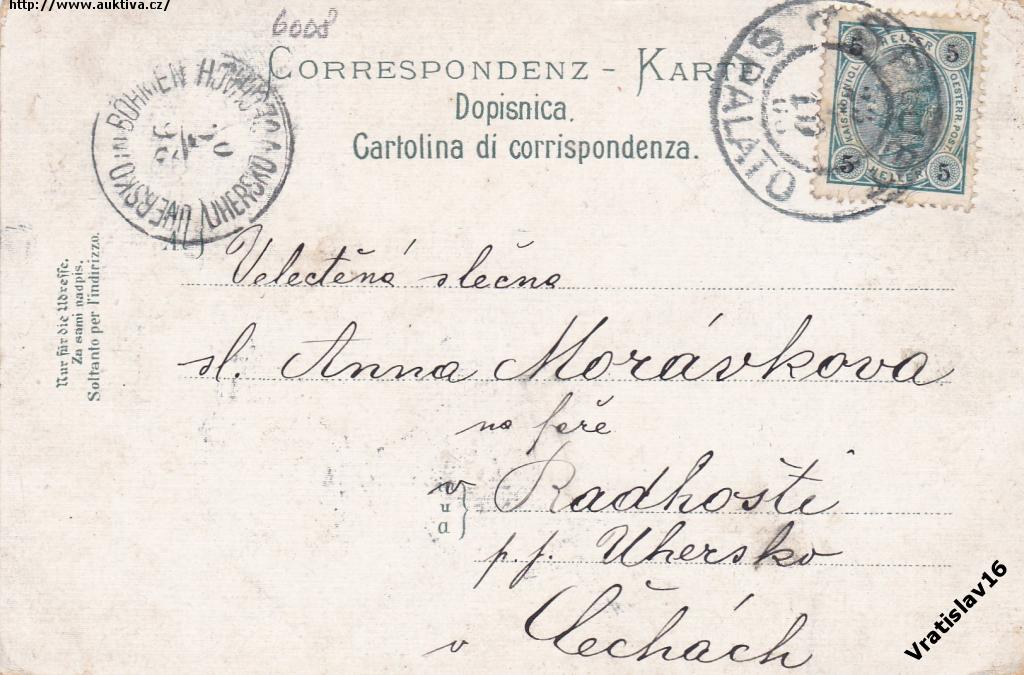 http://www.auktiva.cz/
6008
CORRESPONDENZ - KARTE
Dopisnica.
Cartolina di corrispondenza.
SPALATO
5 HELLER 5
KAIS. KOENIGL. OESTERR. POST
5 HELLER 5
UHERSKO IN BÖHMEN
UHERSKO
Nur für die Adresse.
Za sami nadpis.
Soltanto per l'indirizzo.
Velectěná slečna
sl. Anna Morávkova
na faře
v Radhošti
u
a
p.p. Uhersko
v Čechách
Vratislav16